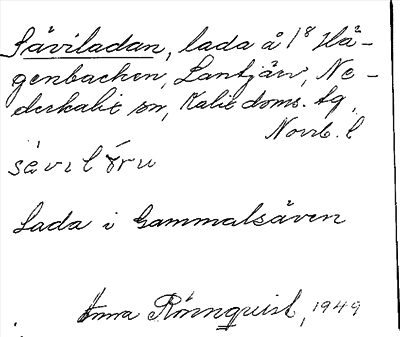 Säviladan, lada å 1⁸ Hä-
genbacken, Lantjärv, Ne-
derkalix sn, Kalix doms. tg,
Norrb. l
Lada i Gammalsäven
Anna Rönnqvist, 1949